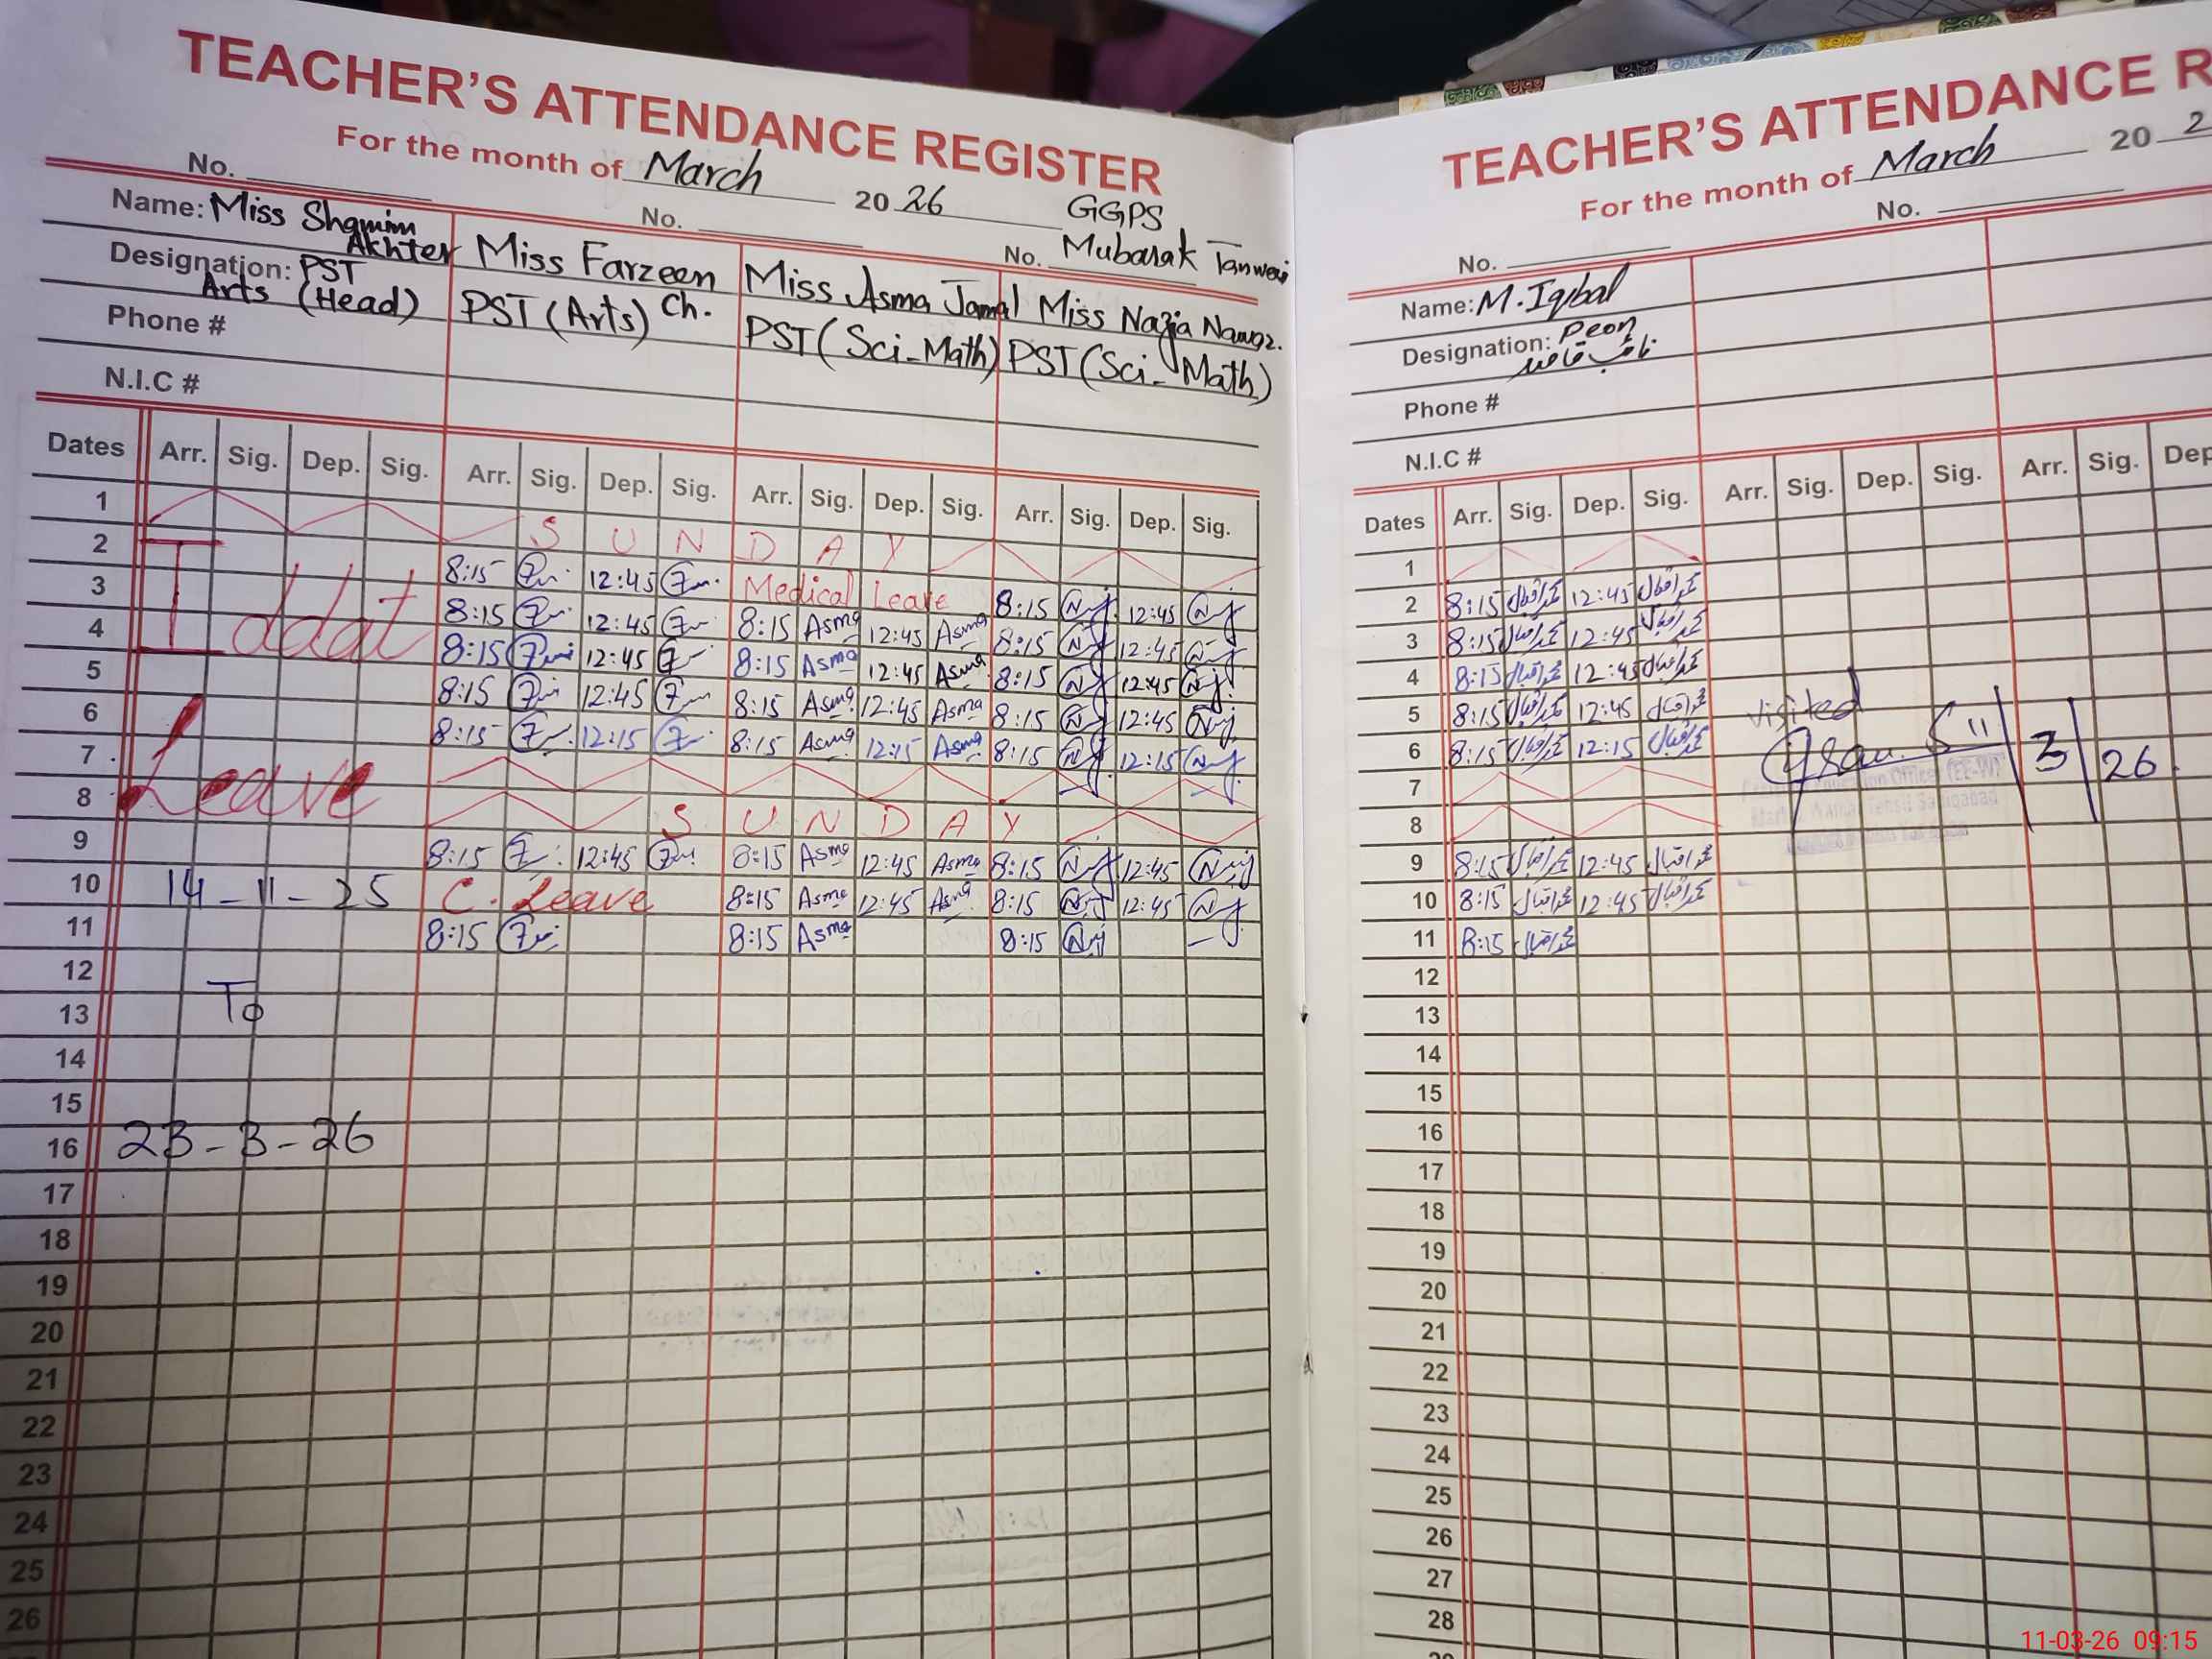 TEACHER'S ATTENDANCE REGISTER
For the month of March 2026
GGPS
Mubarak Tanweri
No. No. No.
Name: Miss Shamim Akhter Miss Farzeen Ch. Miss Asma Jamal Miss Nazia Nawaz.
Designation: PST Arts (Head) PST (Arts) PST (Sci-Math) PST (Sci-Math)
Phone #
N.I.C #
Dates Arr. Sig. Dep. Sig. Arr. Sig. Dep. Sig. Arr. Sig. Dep. Sig. Arr. Sig. Dep. Sig.
1 SUNDAY
2 8:15 12:45 Medical Leave 8:15 12:45
3 8:15 12:45 8:15 Asma 12:45 Asma 8:15 12:45
4 8:15 12:45 8:15 Asma 12:45 Asma 8:15 12:45
5 8:15 12:45 8:15 Asma 12:45 Asma 8:15 12:45
6 8:15 12:15 8:15 Asma 12:15 Asma 8:15 12:15
7
8 SUNDAY
Iddat
Leave
9 8:15 12:45 8:15 Asma 12:45 Asma 8:15 12:45
10 14-11-25 C. Leave 8:15 Asma 12:45 Asma 8:15 12:45
11 8:15 8:15 Asma 8:15
12
13 To
14
15
16 23-3-26
17
18
19
20
21
22
23
24
25
26
TEACHER'S ATTENDANCE R
For the month of March 20 2
No. No.
Name: M. Iqbal
Designation: Peon
نائب قاصد
Phone #
N.I.C #
Dates Arr. Sig. Dep. Sig. Arr. Sig. Dep. Sig. Arr. Sig. Dep
1
2 8:15 محمد اقبال 12:45 محمد اقبال
3 8:15 محمد اقبال 12:45 محمد اقبال
4 8:15 محمد اقبال 12:45 محمد اقبال
5 8:15 محمد اقبال 12:45 محمد اقبال
6 8:15 محمد اقبال 12:15 محمد اقبال
visited
11/3/26.
7
8
9 8:15 محمد اقبال 12:45 محمد اقبال
10 8:15 محمد اقبال 12:45 محمد اقبال
11 8:15 محمد اقبال
12
13
14
15
16
17
18
19
20
21
22
23
24
25
26
27
28
11-03-26 09:15